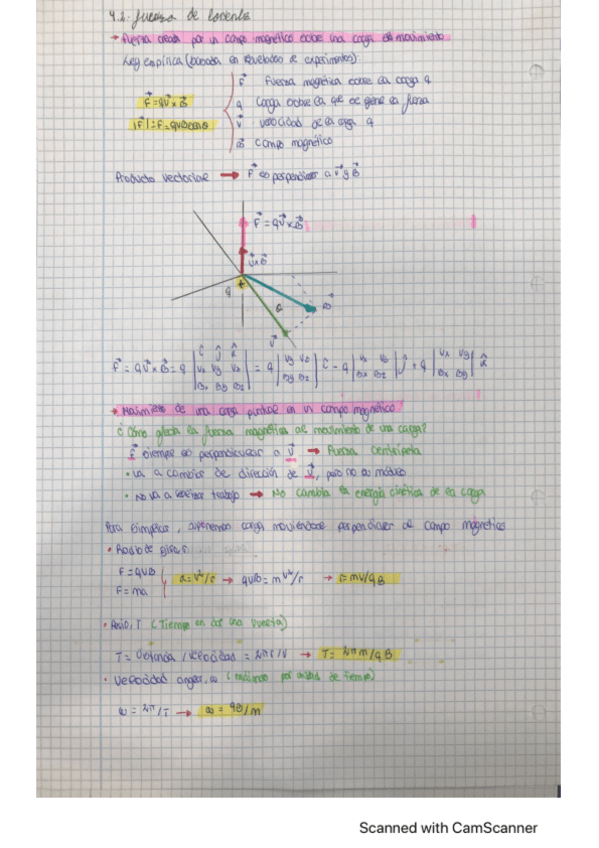 4.2. Fuerza de Lorentz
→ Fuerza creada por un campo magnético sobre una carga en movimiento
Ley empírica (basada en resultados de experimentos):
F⃗ = qV⃗ x B⃗
|F⃗| = F = qVB
F⃗ Fuerza magnética sobre la carga q
q Carga sobre la que se ejerce la fuerza
V⃗ velocidad de la carga q
B⃗ Campo magnético
Producto vectorial → F⃗ es perpendicular a V⃗ y B⃗
F⃗ = qV⃗ x B⃗
V⃗ x B⃗
q
+
B⃗
V⃗
F⃗ = qV⃗ x B⃗ = q | î ĵ k̂ | = q | Vy Vz | î - q | Vx Vz | ĵ + q | Vx Vy | k̂
| Vx Vy Vz | | By Bz | | Bx Bz | | Bx By |
| Bx By Bz |
→ Movimiento de una carga puntual en un campo magnético
¿Cómo afecta la fuerza magnética al movimiento de una carga?
F⃗ siempre es perpendicular a V⃗ → Fuerza centrípeta
• Va a cambiar de dirección de V⃗, pero no su módulo
• No va a realizar trabajo → No cambia la energía cinética de la carga
Para simplificar, suponemos carga moviéndose perpendicular al campo magnético
• Radio de giro, r
F = qVB
F = ma
a = V²/r → qVB = m V²/r → r = mV/qB
T (Tiempo en dar una vuelta)
T = distancia / velocidad = 2πr/V → T = 2πm/qB
• Velocidad angular, ω ( por unidad de tiempo)
ω = 2π/T → ω = qB/m
Scanned with CamScanner